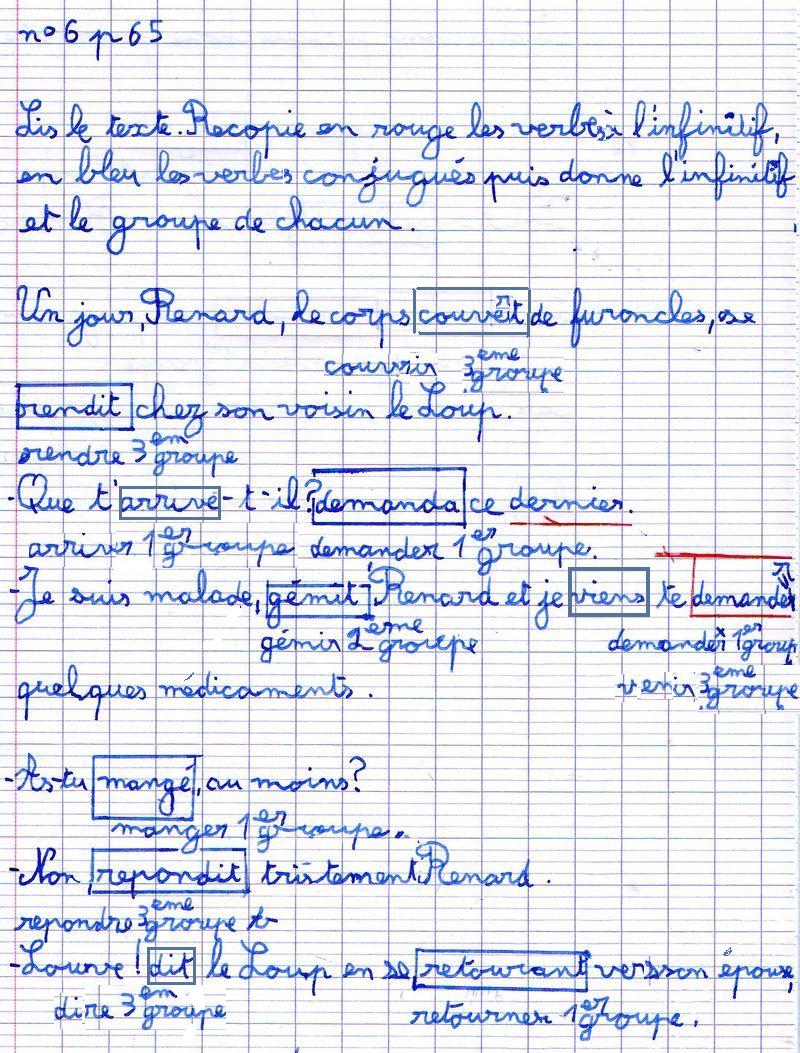 n° 6 p 65
Lis le texte. Recopie en rouge les verbes à l'infinitif,
en bleu les verbes conjugués puis donne l'infinitif
et le groupe de chacun.
Un jour, Renard, le corps couvert de furoncles, se
couvrir 3eme groupe
rendit chez son voisin le Loup.
rendre 3em groupe
- Que t'arrive-t-il? demanda ce dernier.
arriver 1er groupe demander 1er groupe.
- Je suis malade, gémit Renard et je viens te demander
gémir 2eme groupe demander 1er group
venir 3eme groupe
quelques médicaments.
- As-tu mangé, au moins?
manger 1er groupe.
- Non, repondit tristement Renard.
repondre 3eme groupe
- Louve! dit le Loup en se retourant vers son epouse,
dire 3em groupe retourner 1er groupe.